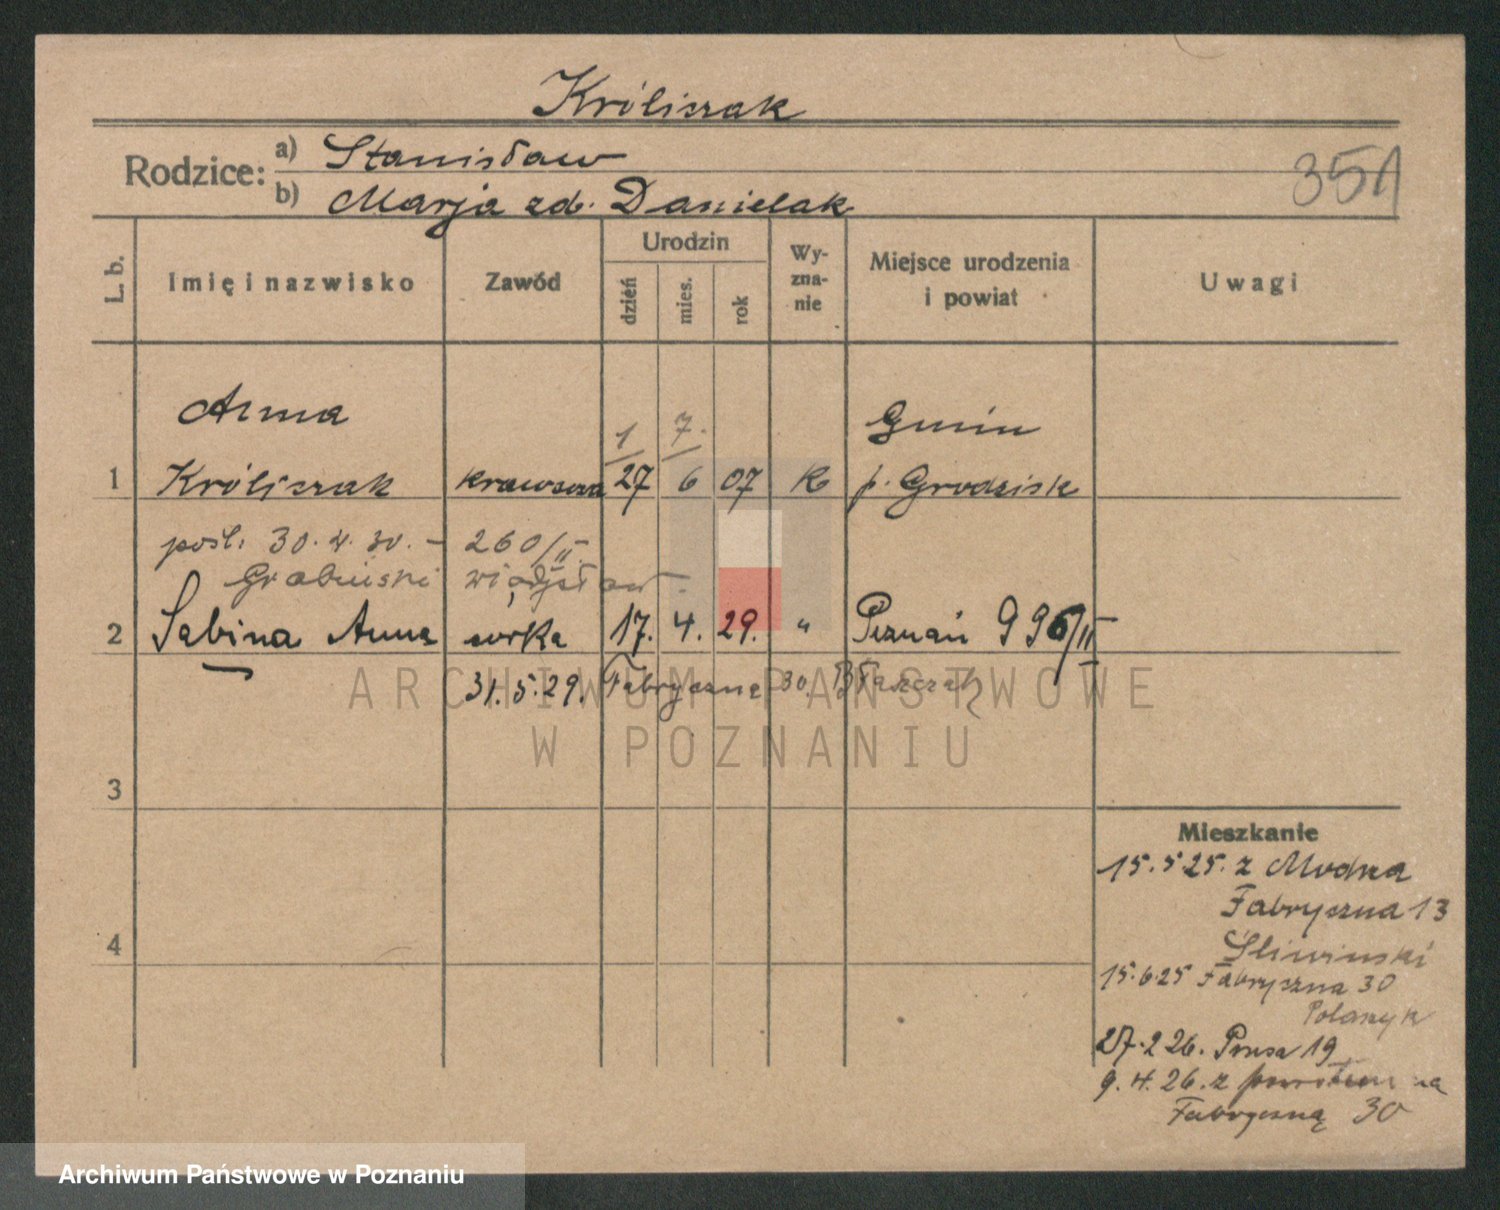 Króliszak
Rodzice: a) Stanisław
b) Marja zd. Danielak
351
L. b.
Imię i nazwisko
Zawód
Urodzin
dzień
mies.
rok
Wy-
zna-
nie
Miejsce urodzenia
i powiat
Uwagi
Anna
1 7.
Gnin
1 Króliszak krawcowa 27 6 07 K p. Grodzisk
pośl. 30.4.30. – 260/II
Grabiński Władysław
2 Sabina Anna córka 17. 4. 29. " Poznań 996/II
31.5.29. Fabryczna 30. Błaszczak
ARCHIWUM PAŃSTWOWE
W POZNANIU
3
4
Mieszkanie
15.5.25. z Modrza
Fabryczna 13
Śliwiński
15.6.25 Fabryczna 30
Polaszyk
27.2 26. Prusa 19
9.4.26. z powrotem na
Fabryczną 30
Archiwum Państwowe w Poznaniu